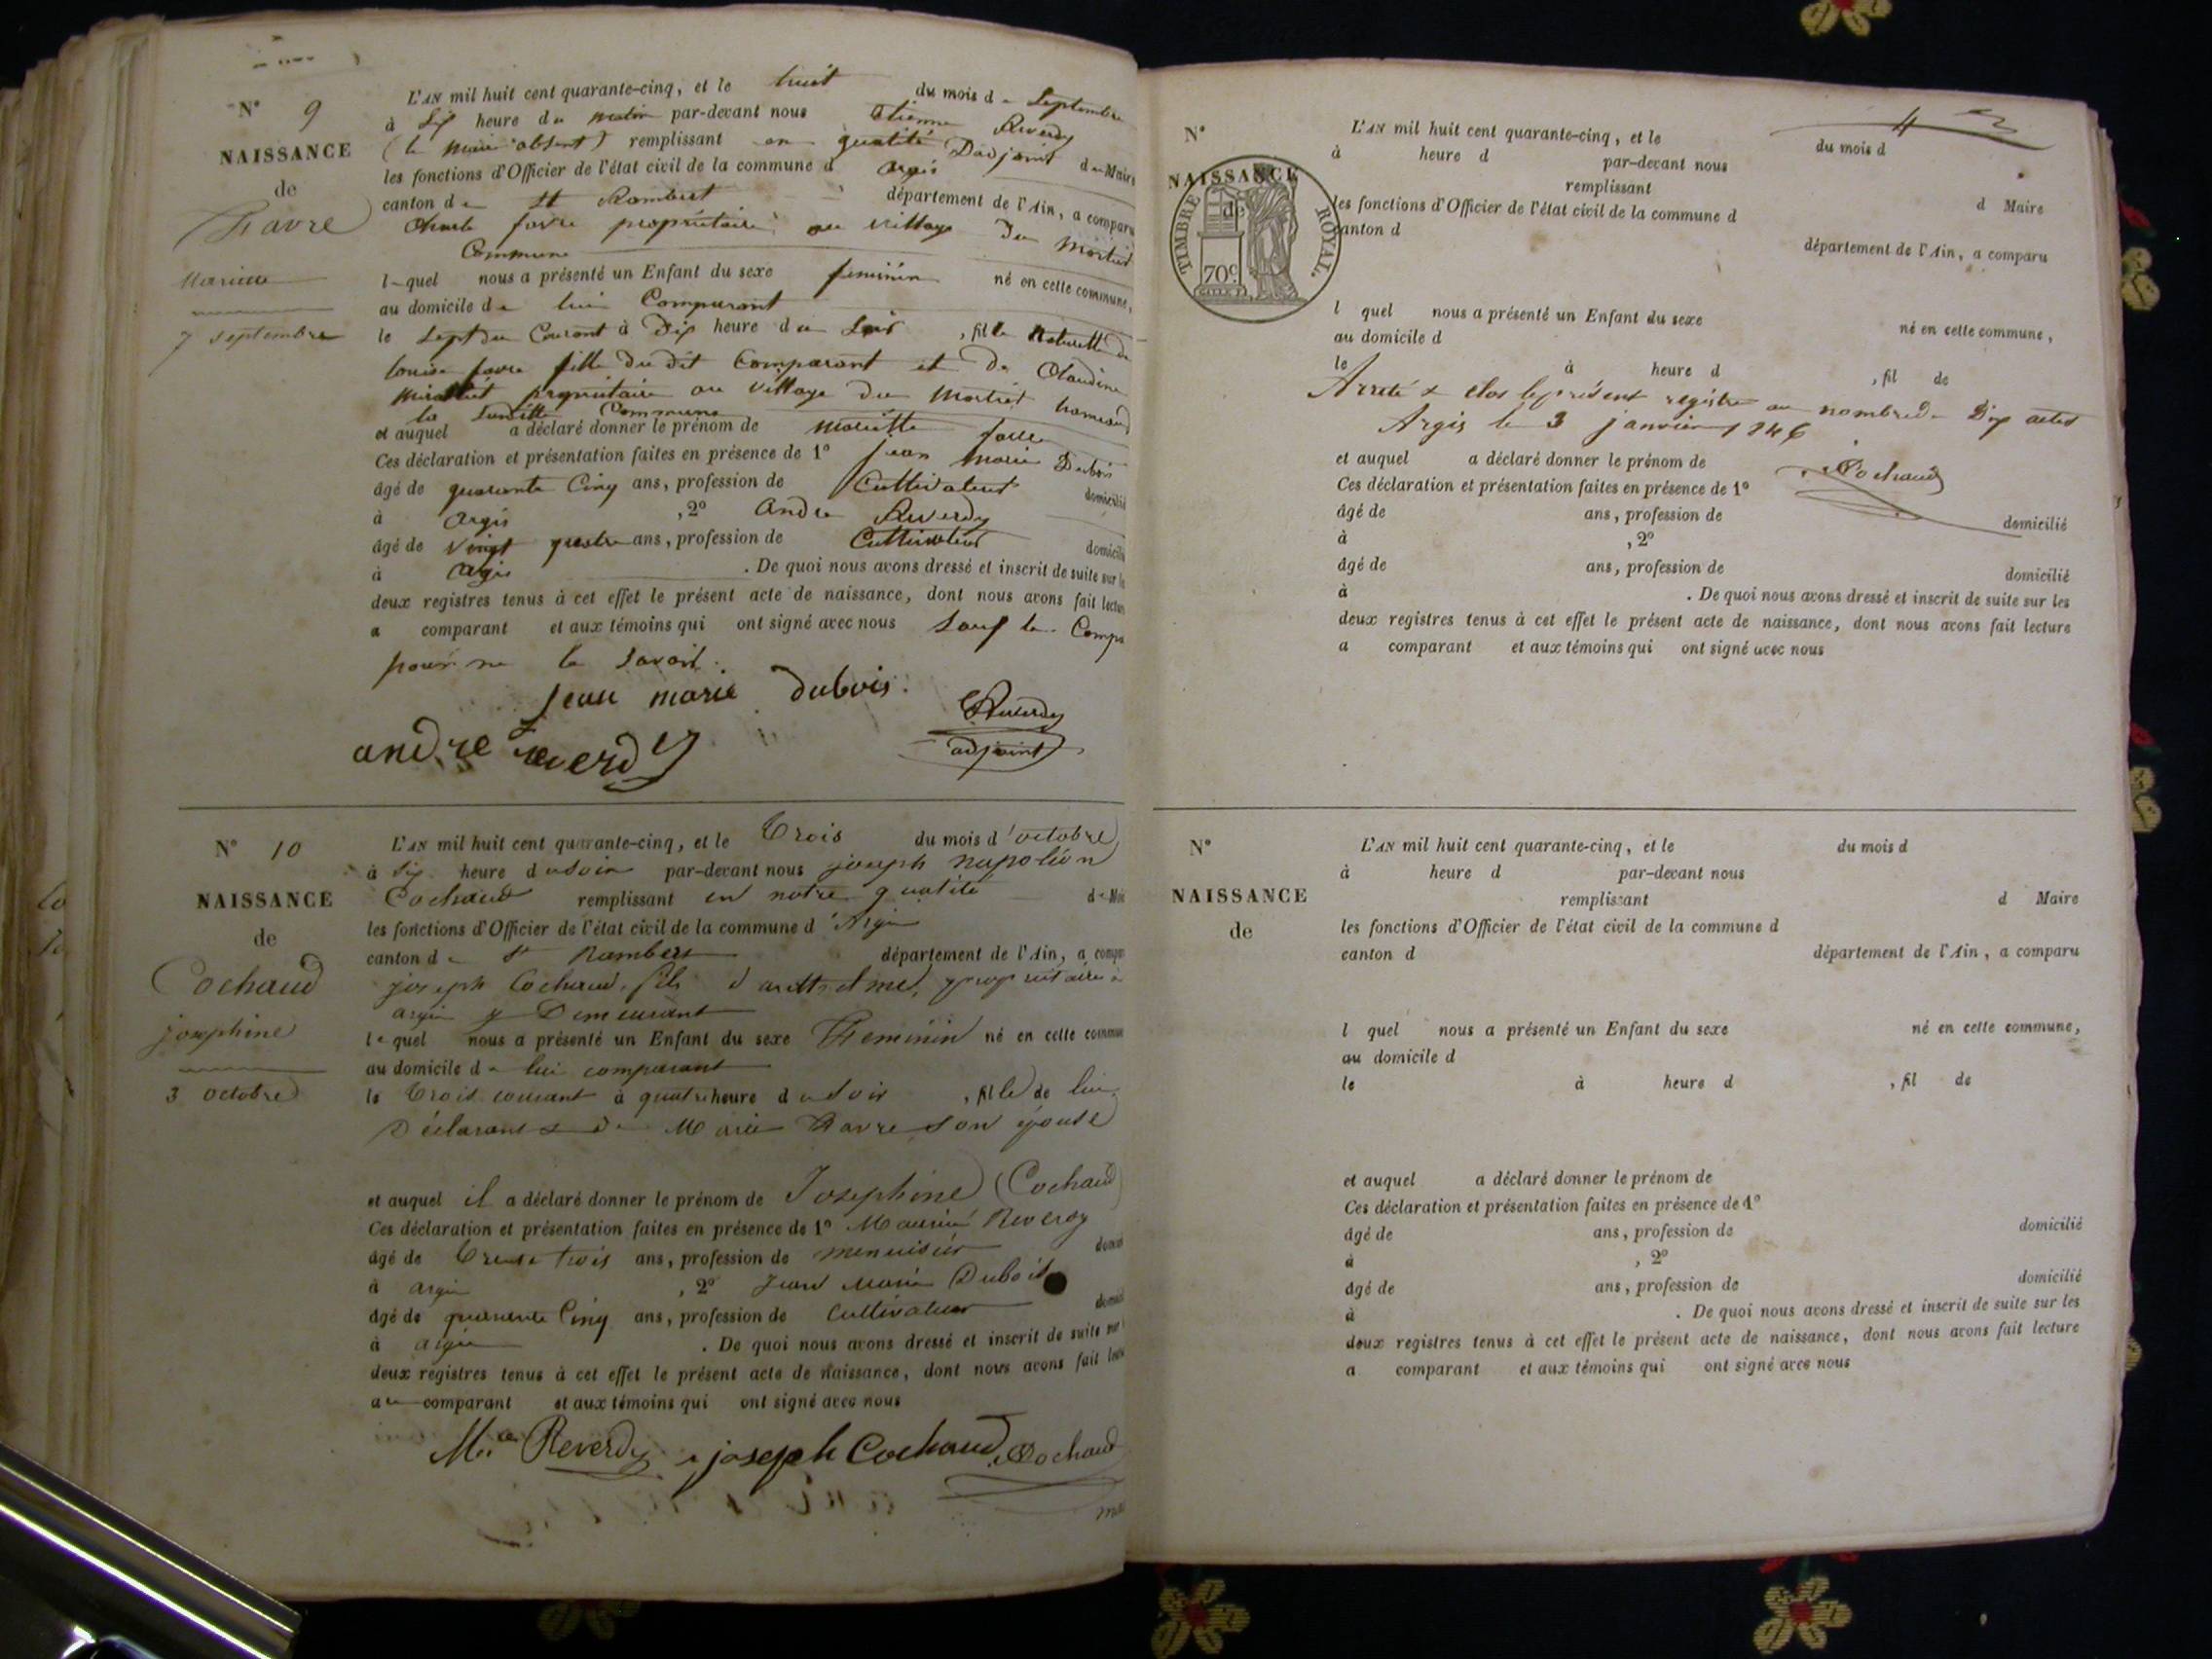 N° 9
NAISSANCE
de
Favre
Mariette
7 septembre
L'AN mil huit cent quarante-cinq, et le huit du mois de Septembre
à Dix heure du matin par-devant nous Etienne Reverdy
(le maire absent) remplissant en qualité D'adjoint de Maire
les fonctions d'Officier de l'état civil de la commune d argis
canton de St Rambert département de l'Ain, a comparu
Charle favre propriétaire au village du Mortier
Commune
lequel nous a présenté un Enfant du sexe feminin né en cette commune,
au domicile de lui Comparant
le Sept du Courant à Dix heure du Soir, fille Naturelle de
louise favre fille du dit Comparant et de Claudine
propriétaire au village du Mortier
la Commune
et auquel a déclaré donner le prénom de Mariette
Ces déclaration et présentation faites en présence de 1° jean marie Dubois
âgé de quarante Cinq ans, profession de Cultivateur domicilié
à argis, 2° André Reverdy
âgé de vingt quatre ans, profession de Cultivateur domicilié
à argis. De quoi nous avons dressé et inscrit de suite sur le
deux registres tenus à cet effet le présent acte de naissance, dont nous avons fait lecture
a comparant et aux témoins qui ont signé avec nous Sauf le Compa
pour ne le Savoir.
jean marie dubois.
andre reverdy
Reverdy
adjoint
N° 10
NAISSANCE
de
Cochaud
josephine
3 octobre
L'AN mil huit cent quarante-cinq, et le Trois du mois d'octobre
à Six heure du soir par-devant nous joseph napoléon
Cochaud remplissant en notre qualité de Mai
les fonctions d'Officier de l'état civil de la commune d'Argis
canton de St Rambert département de l'Ain, a compa
joseph Cochaud, fils d'anthelme, propriétaire à
argis y Demeurant
lequel nous a présenté un Enfant du sexe Feminin né en cette commun
au domicile de lui comparant
le Trois courant à quatre heure du soir, fille de lui
Déclarant & de Marie Favre son épouse
et auquel il a déclaré donner le prénom de Josephine (Cochaud)
Ces déclaration et présentation faites en présence de 1° Maurice Reverdy
âgé de trente trois ans, profession de menuisier domici
à argis, 2° Jean Marie Dubois
âgé de quarente Cinq ans, profession de Cultivateur domicil
à argis. De quoi nous avons dressé et inscrit de suite sur
deux registres tenus à cet effet le présent acte de naissance, dont nous avons fait lectu
au comparant et aux témoins qui ont signé avec nous
Mce Reverdy joseph Cochaud Cochaud
mai
N°
NAISSANCE
de
TIMBRE ROYAL.
70c
L'AN mil huit cent quarante-cinq, et le du mois d
à heure d par-devant nous
remplissant d Maire
les fonctions d'Officier de l'état civil de la commune d
canton d département de l'Ain, a comparu
l quel nous a présenté un Enfant du sexe né en cette commune,
au domicile d
le à heure d, fil de
Arreté & clos le présent registre au nombre de Dix actes
Argis le 3 janvier 1846
et auquel a déclaré donner le prénom de
Cochaud
Ces déclaration et présentation faites en présence de 1°
âgé de ans, profession de domicilié
à, 2°
âgé de ans, profession de domicilié
à. De quoi nous avons dressé et inscrit de suite sur les
deux registres tenus à cet effet le présent acte de naissance, dont nous avons fait lecture
a comparant et aux témoins qui ont signé avec nous
N°
NAISSANCE
de
L'AN mil huit cent quarante-cinq, et le du mois d
à heure d par-devant nous
remplissant d Maire
les fonctions d'Officier de l'état civil de la commune d
canton d département de l'Ain, a comparu
l quel nous a présenté un Enfant du sexe né en cette commune,
au domicile d
le à heure d, fil de
et auquel a déclaré donner le prénom de
Ces déclaration et présentation faites en présence de 1°
âgé de ans, profession de domicilié
à, 2°
âgé de ans, profession de domicilié
à. De quoi nous avons dressé et inscrit de suite sur les
deux registres tenus à cet effet le présent acte de naissance, dont nous avons fait lecture
a comparant et aux témoins qui ont signé avec nous